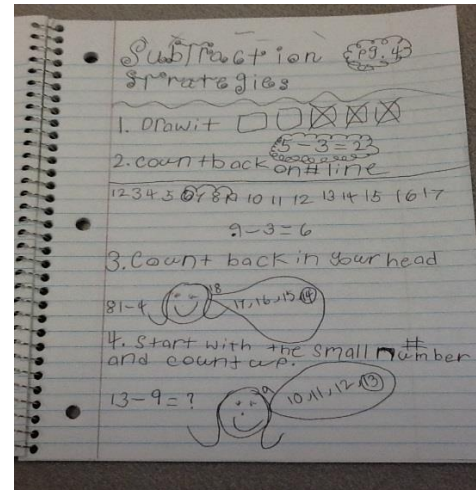 Subtraction pg. 43
Strategies
1. Draw it
5-3=2
2. count back on # line
1 2 3 4 5 6 7 8 9 10 11 12 13 14 15 16 17
9-3=6
3. Count back in your head
18
81-4 17, 16, 15, 14
4. Start with the small number #
and count up.
9
13-9=? 10, 11, 12, 13